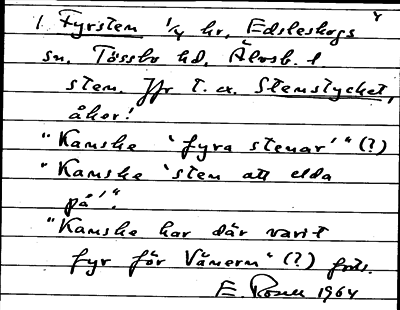 1. Fyrsten 1/4 hr, Edsleskogs
sn, Tössbo hd, Älvsb. l.
sten. Jfr t. ex. Stenstycket,
åker!
"Kanske 'fyra stenar'" (?)
"Kanske 'sten att elda
på'".
"Kanske har där varit
fyr för Vänern" (?) forts.
E. Rosell 1964